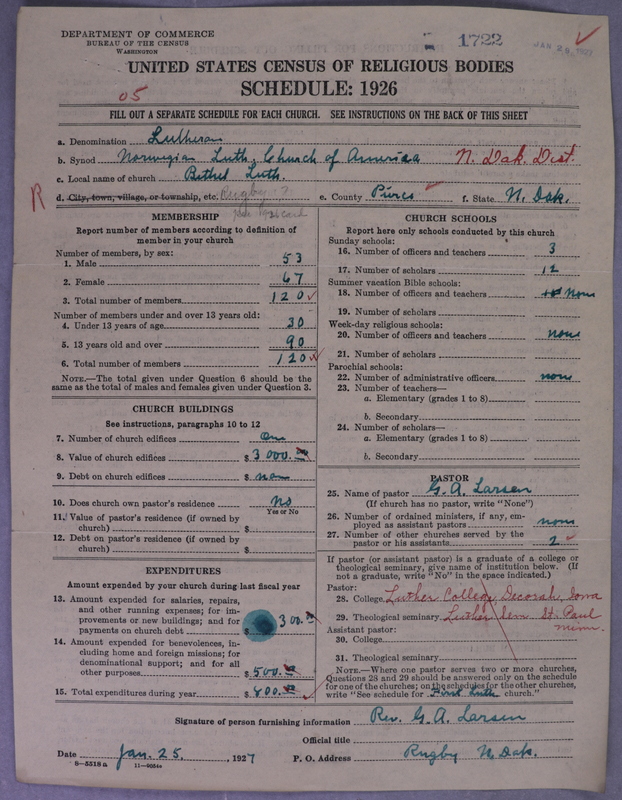 DEPARTMENT OF COMMERCE
BUREAU OF THE CENSUS
WASHINGTON
1722
JAN 28 1927
UNITED STATES CENSUS OF RELIGIOUS BODIES
SCHEDULE: 1926
05
FILL OUT A SEPARATE SCHEDULE FOR EACH CHURCH. SEE INSTRUCTIONS ON THE BACK OF THIS SHEET
a. Denomination Lutheran
b. Synod Norwegian Luth. Church of America N. Dak. Dist.
c. Local name of church Bethel Luth.
R d. City, town, village, or township, etc. Rugby ? e. County Pierce f. State N. Dak.
card
MEMBERSHIP
Report number of members according to definition of
member in your church
Number of members, by sex:
1. Male 53
2. Female 67
3. Total number of members 120
Number of members under and over 13 years old:
4. Under 13 years of age 30
5. 13 years old and over 90
6. Total number of members 120
NOTE.—The total given under Question 6 should be the
same as the total of males and females given under Question 3.
CHURCH BUILDINGS
See instructions, paragraphs 10 to 12
7. Number of church edifices One
8. Value of church edifices $ 3 000.00
9. Debt on church edifices $ none
10. Does church own pastor's residence No
Yes or No
11. Value of pastor's residence (if owned by
church) $
12. Debt on pastor's residence (if owned by
church) $
EXPENDITURES
Amount expended by your church during last fiscal year
13. Amount expended for salaries, repairs,
and other running expenses; for im-
provements or new buildings; and for
payments on church debt $ 300.
14. Amount expended for benevolences, in-
cluding home and foreign missions; for
denominational support; and for all
other purposes $ 500.00
15. Total expenditures during year $ 800.00
CHURCH SCHOOLS
Report here only schools conducted by this church
Sunday schools:
16. Number of officers and teachers 3
17. Number of scholars 12
Summer vacation Bible schools:
18. Number of officers and teachers none
19. Number of scholars
Week-day religious schools:
20. Number of officers and teachers none
21. Number of scholars
Parochial schools:
22. Number of administrative officers none
23. Number of teachers—
a. Elementary (grades 1 to 8)
b. Secondary
24. Number of scholars—
a. Elementary (grades 1 to 8)
b. Secondary
PASTOR
25. Name of pastor G. A. Larsen
(If church has no pastor, write "None")
26. Number of ordained ministers, if any, em-
ployed as assistant pastors none
27. Number of other churches served by the
pastor or his assistants 2
If pastor (or assistant pastor) is a graduate of a college or
theological seminary, give name of institution below. (If
not a graduate, write "No" in the space indicated.)
Pastor:
28. College Luther College Decorah, Iowa
29. Theological seminary Luther Sem. St. Paul
Minn.
Assistant pastor:
30. College
31. Theological seminary
NOTE.—Where one pastor serves two or more churches,
Questions 28 and 29 should be answered only on the schedule
for one of the churches; on the schedules for the other churches,
write "See schedule for First Luth church."
Signature of person furnishing information Rev. G. A. Larsen
Official title
Date Jan. 25, 1927 P. O. Address Rugby N. Dak.
8—5518a 11—9054